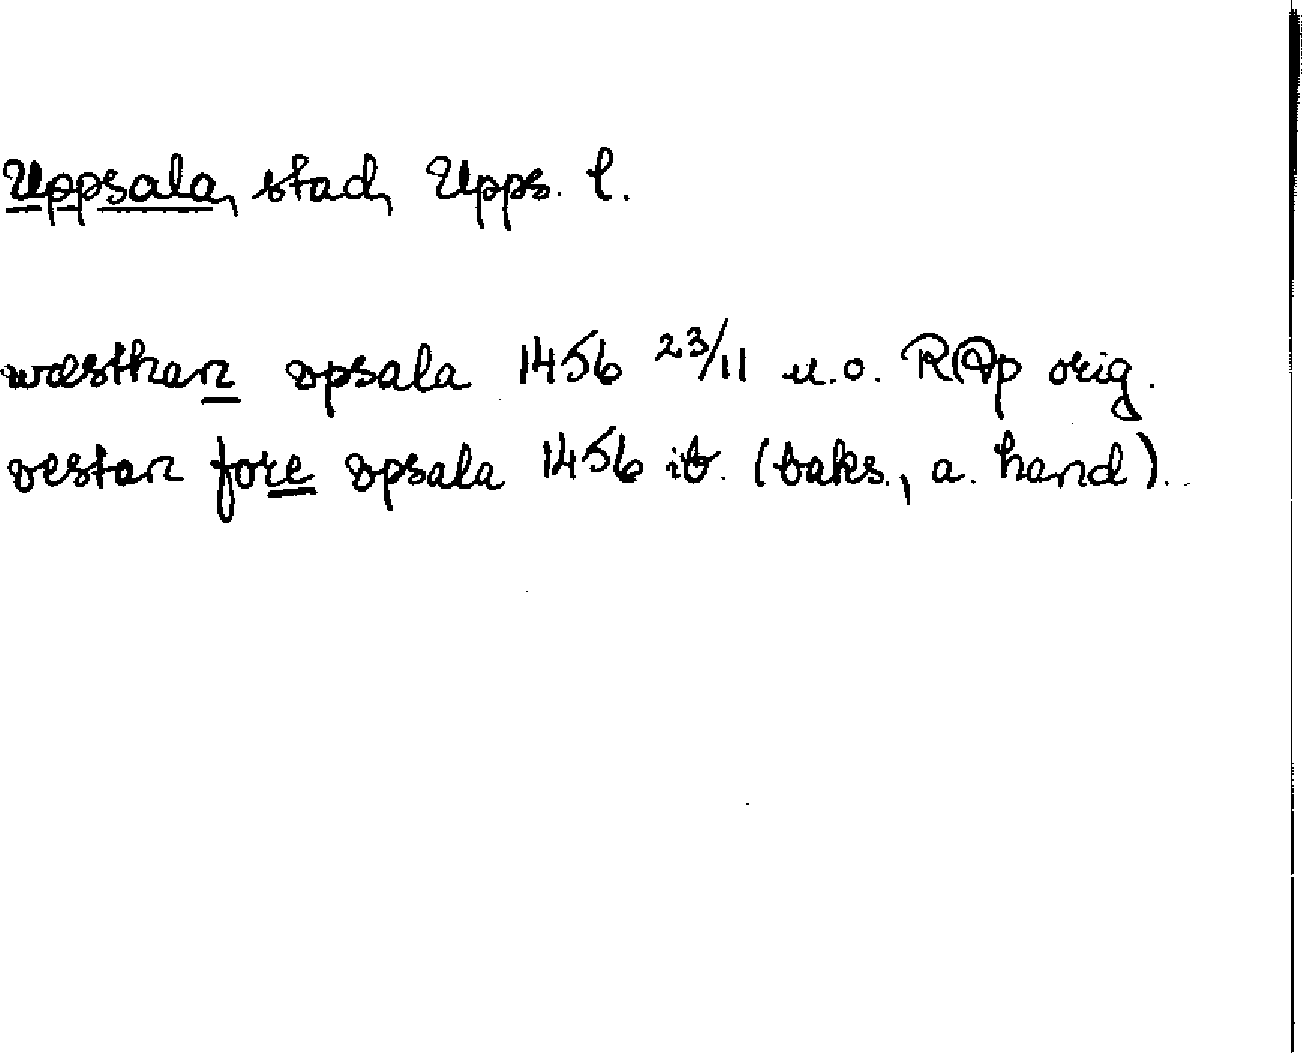 Uppsala, stad, Upps. l.
wæsthan vpsala 1456 23/11 u.o. RAp orig.
vestan fore vpsala 1456 ib. (baks., a. hand).